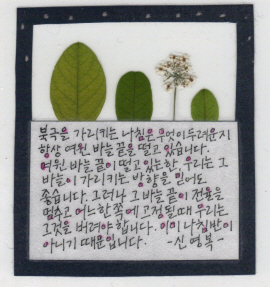 북극을 가리키는 나침은 무엇이 두려운지
항상 여윈 바늘 끝을 떨고 있습니다.
여윈 바늘 끝이 떨고 있는한, 우리는 그
바늘이 가리키는 방향을 믿어도
좋습니다. 그러나 그 바늘 끝이 전율을
멈추고 어느 한쪽에 고정될때 우리는
그것을 버려야 합니다. 이미 나침반이
아니기 때문입니다. -신영복-